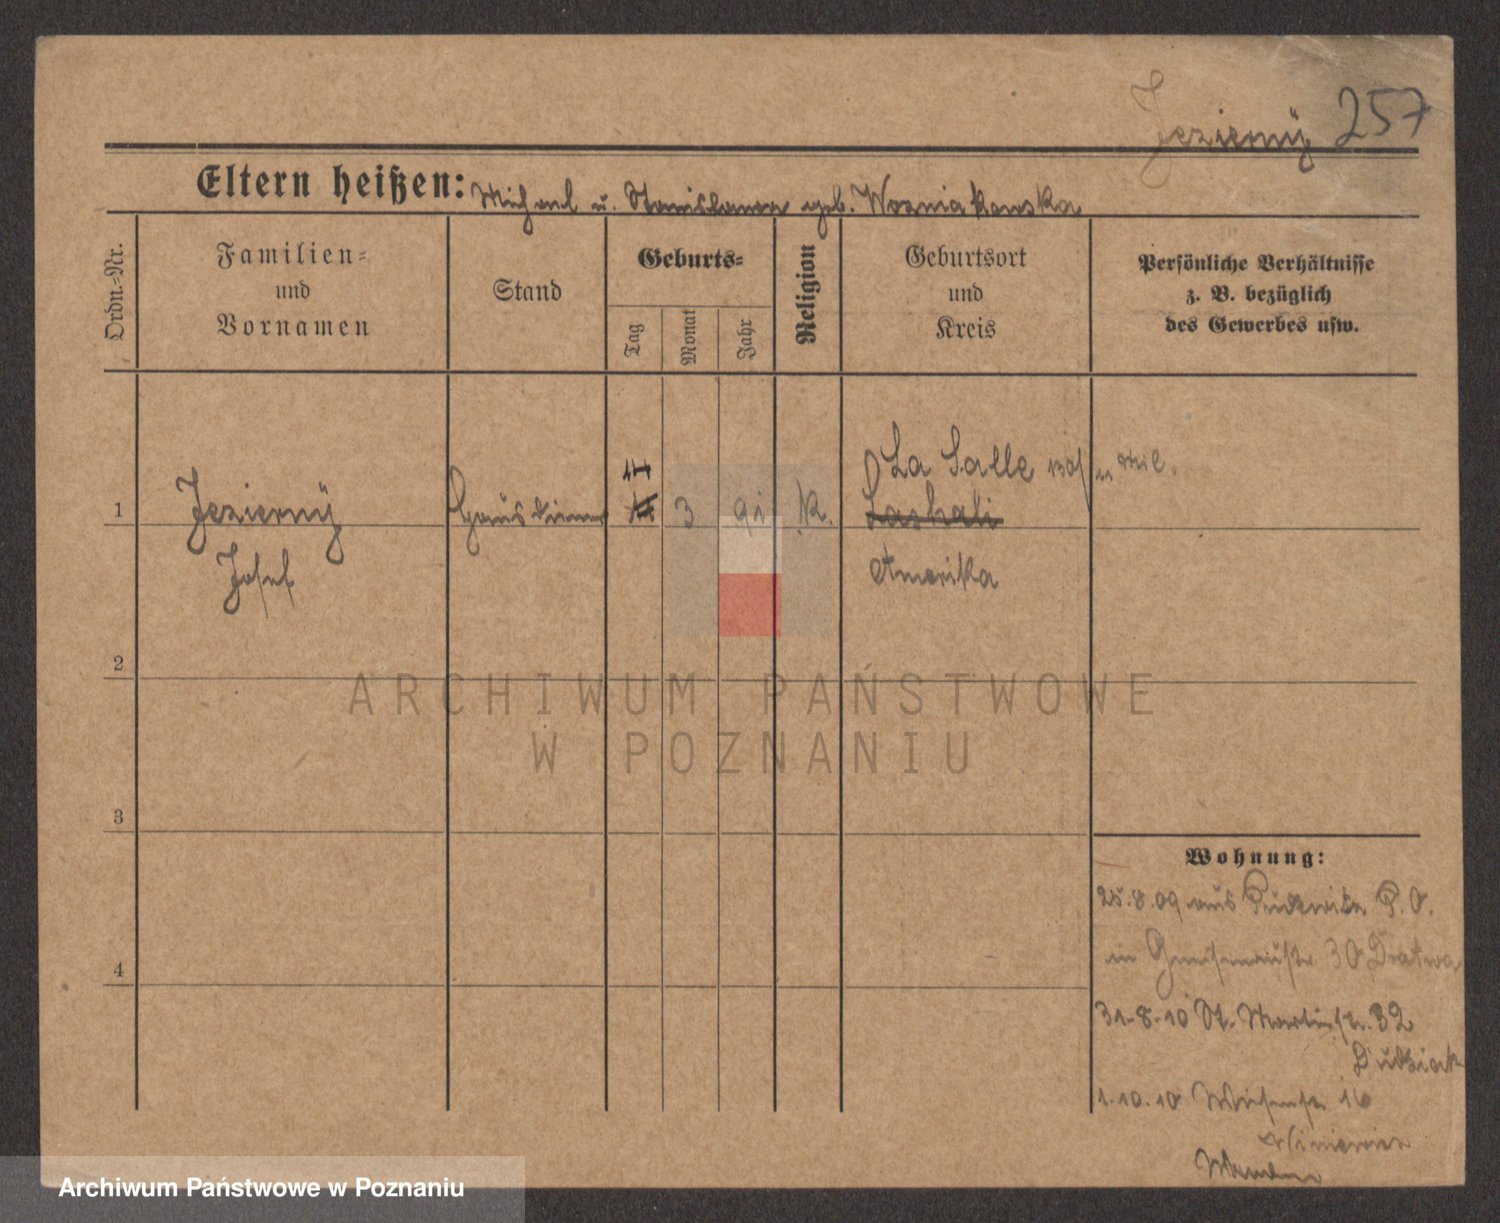 Jezierny 257
Eltern heißen: Michael u. Stanislawa geb. Wozniakowska
Ordn.-Nr.
Familien=
und
Vornamen
Stand
Geburts=
Tag
Monat
Jahr
Religion
Geburtsort
und
Kreis
Persönliche Verhältnisse
z. B. bezüglich
des Gewerbes usw.
La Salle
1 Jezierny Hausdiener 3 91 K. Laskali
Josef
Amerika
2
3
4
Wohnung:
25.8.09 aus Pudewitz P. O.
in Gneisenaustr 30 Dratwa
31.8.10 St. Martinstr. 32
Dudziak
1.10.10 Wiesenstr 16
ARCHIWUM PAŃSTWOWE
W POZNANIU
Archiwum Państwowe w Poznaniu